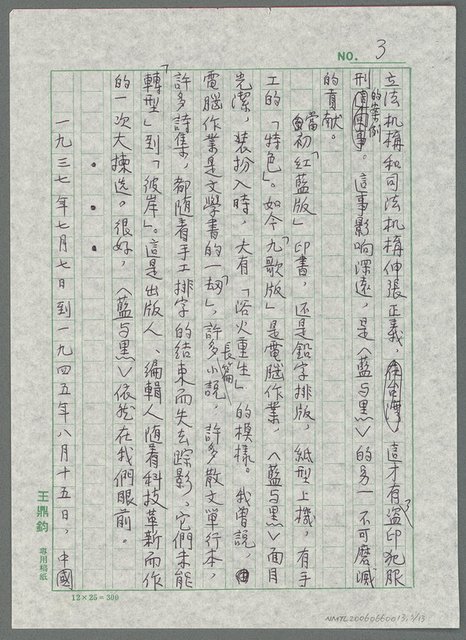 NO. 3
立法机構和司法机構伸張正義，這才有盜印犯服
刑的案例。這事影响深遠，是〈藍与黑〉的另一不可磨滅
的貢献。
當初「紅藍版」印書，还是鉛字排版，紙型上機，有手
工的「特色」。如今「九歌版」是電腦作業，〈藍与黑〉面目
光潔，装扮入時，大有「浴火重生」的模樣。我曾説，
電腦作業是文學書的「一劫」，許多長篇小説，許多散文單行本，
許多詩集，都随着手工排字的结束而失去踪影，它們未能
「轉型」到「彼岸」。這是出版人、編輯人随着科技革新而作
的一次大揀选。很好，〈藍与黑〉依然在我們眼前。
・・・
一九三七年七月七日到一九四五年八月十五日，中國
王鼎鈞 專用稿紙
12×25=300
NMTL20060660013,3/13